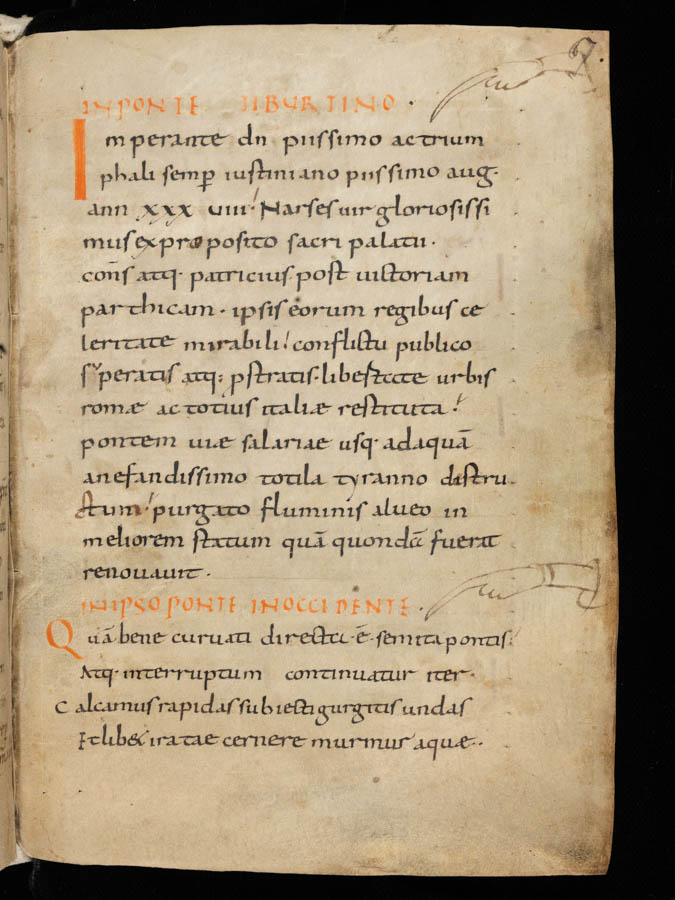 IN PONTE TIBURTINO ·
Imperante dn̄ piissimo ac trium
phali semp̄ iustiniano piissimo aug·
ann xxx viiii Narses uir gloriosissi
mus ex proposito sacri palatii ·
cons̄ atq· patricius post uictoriam
parthicam · ipsis eorum regibus ce
leritate mirabili conflictu publico
sup̄eratis atq; p̄stratis · libertate urbis
romæ ac totius italiæ restituta
pontem uiæ salariae usq· ad aquā
a nefandissimo totila tyranno distru
ctum purgato fluminis alueo in
meliorem statum quā quondā fuerat
renouauit ·
IN IPSO PONTE IN OCCIDENTE ·
Quā bene curuati directa ·ē· semita pontis
Atq· interruptum continuatur iter ·
Calcamus rapidas subiecti gurgitis undas
Et lib& iratae cernere murmur aquæ ··